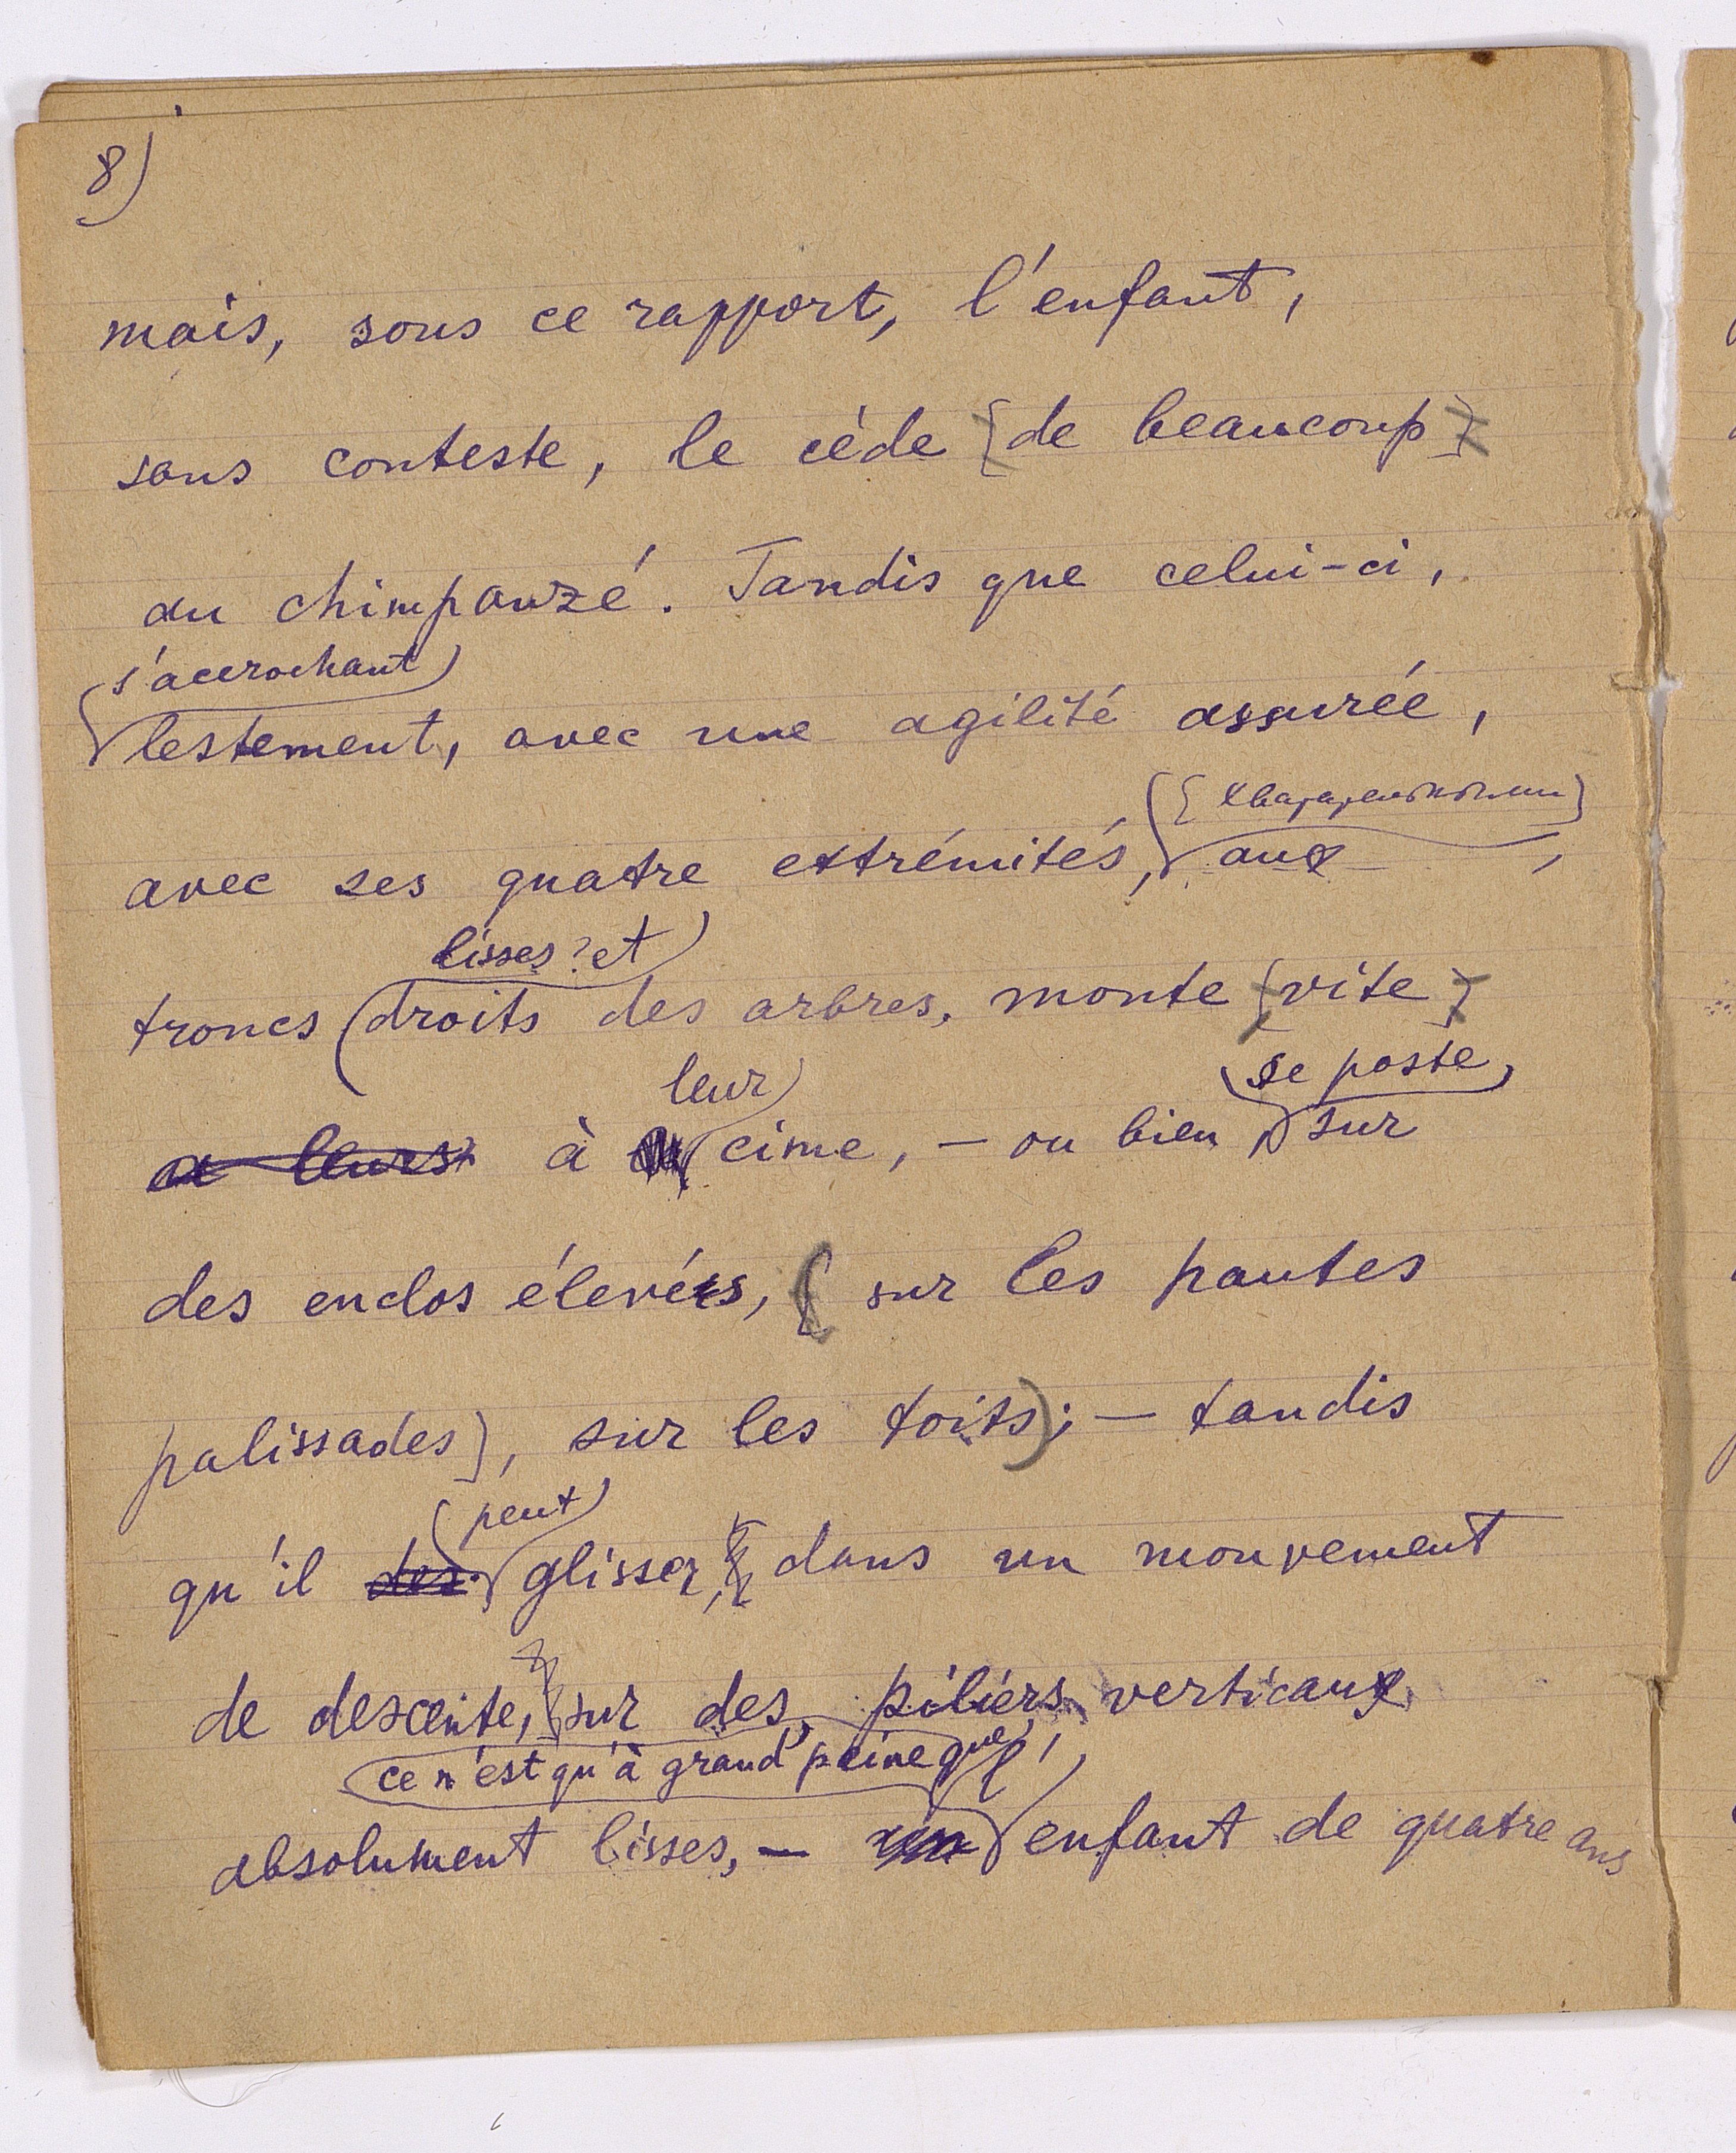 8)
mais, sous ce rapport, l'enfant,
sans conteste, le cède [de beaucoup]
au chimpanzé. Tandis que celui-ci,
s'accrochant
lestement, avec une agilité assurée,
avec ses quatre extrémités, aux
lisses? et
troncs droits des arbres, monte [vite]
leur
se poste,
a leurs à cime, — ou bien, sur
des enclos élevés, [sur les hautes
palissades], sur les toits); — tandis
peut
qu'il des glisser, dans un mouvement
de descente, sur des piliers verticaux,
ce n'est qu'à grand'peine que l'
absolument lisses, — un enfant de quatre ans